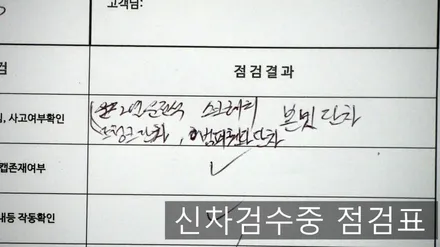 고객님:
검
점검결과
스크래치 본넷단차
트렁크단차,
임, 사고여부확인
캡존재여부
내등 작동확인
신차검수중 점검표